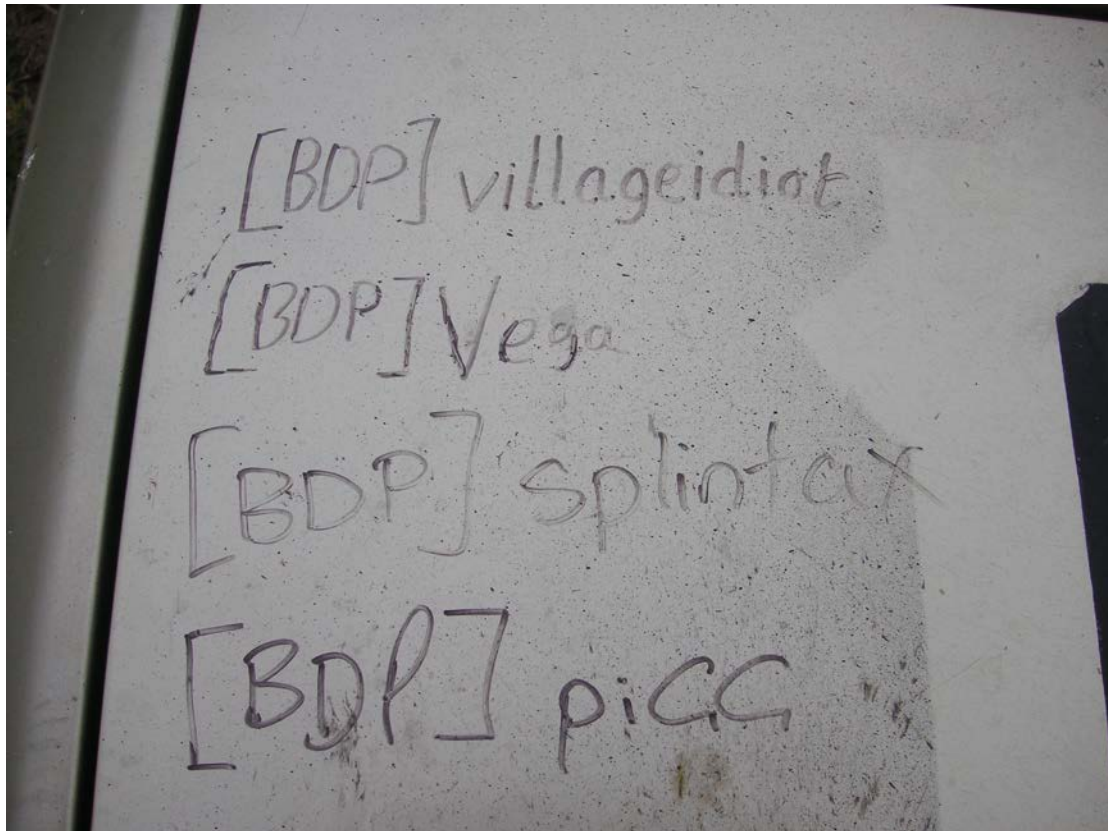 [BDP] villageidiot
[BDP] Vega
[BDP] splintax
[BDP] piGG